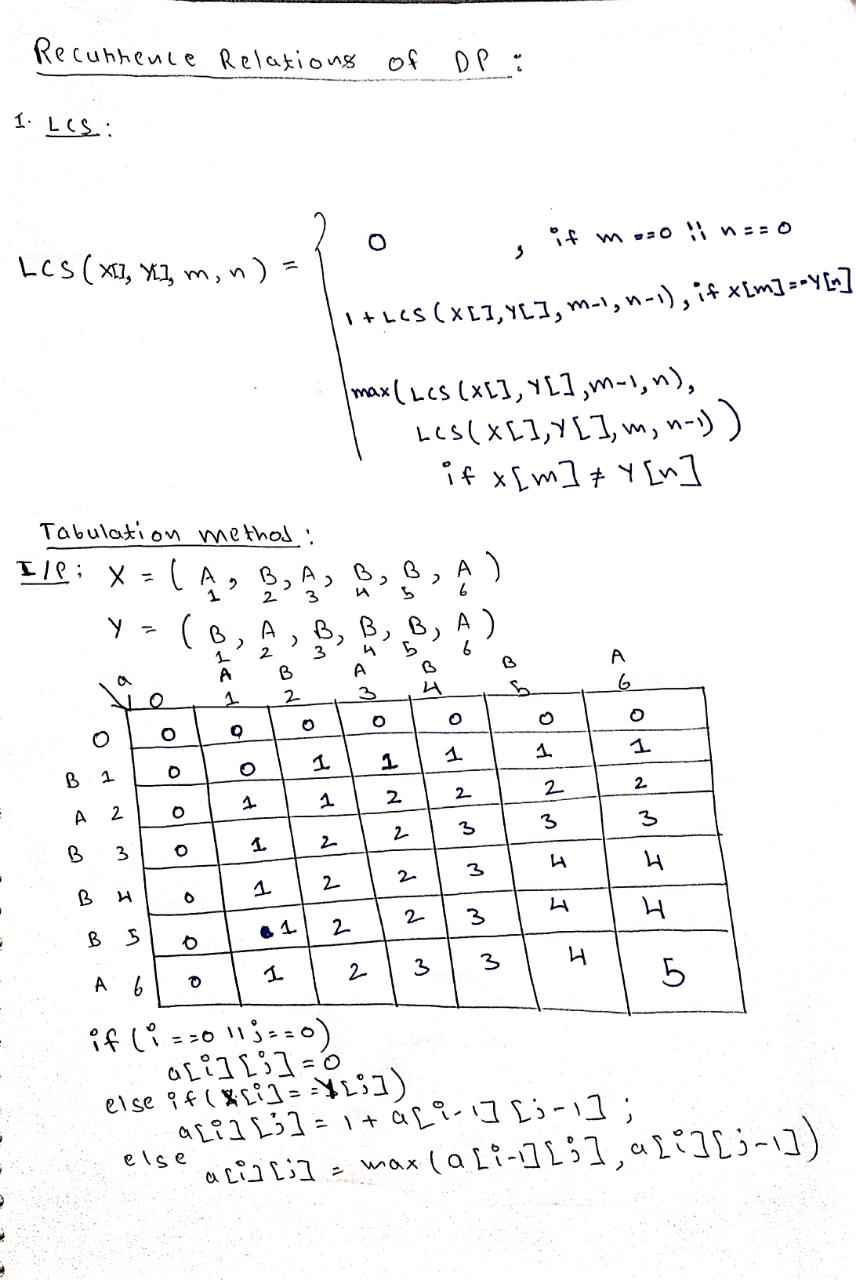 Recurrence Relations of DP :
1. LCS :
LCS (X[], Y[], m, n) =
0 , if m ==0 || n==0
1 + LCS (X[],Y[], m-1, n-1), if x[m]==Y[n]
max( LCS (x[], Y[] ,m-1,n),
LCS( X[],Y[], m, n-1) )
if x[m] ≠ Y[n]
Tabulation method :
I/P : X = ( A, B, A, B, B, A )
1 2 3 4 5 6
Y = ( B, A, B, B, B, A )
1 2 3 4 5 6
A B A B B A
a 0 1 2 3 4 5 6
0 0 0 0 0 0 0 0
B 1 0 0 1 1 1 1 1
A 2 0 1 1 2 2 2 2
B 3 0 1 2 2 3 3 3
B 4 0 1 2 2 3 4 4
B 5 0 1 2 2 3 4 4
A 6 0 1 2 3 3 4 5
if (i ==0 || j==0)
a[i][j]=0
else if(X[i]==Y[j])
a[i][j] = 1 + a[i-1][j-1] ;
else
a[i][j] = max (a[i-1][j], a[i][j-1])